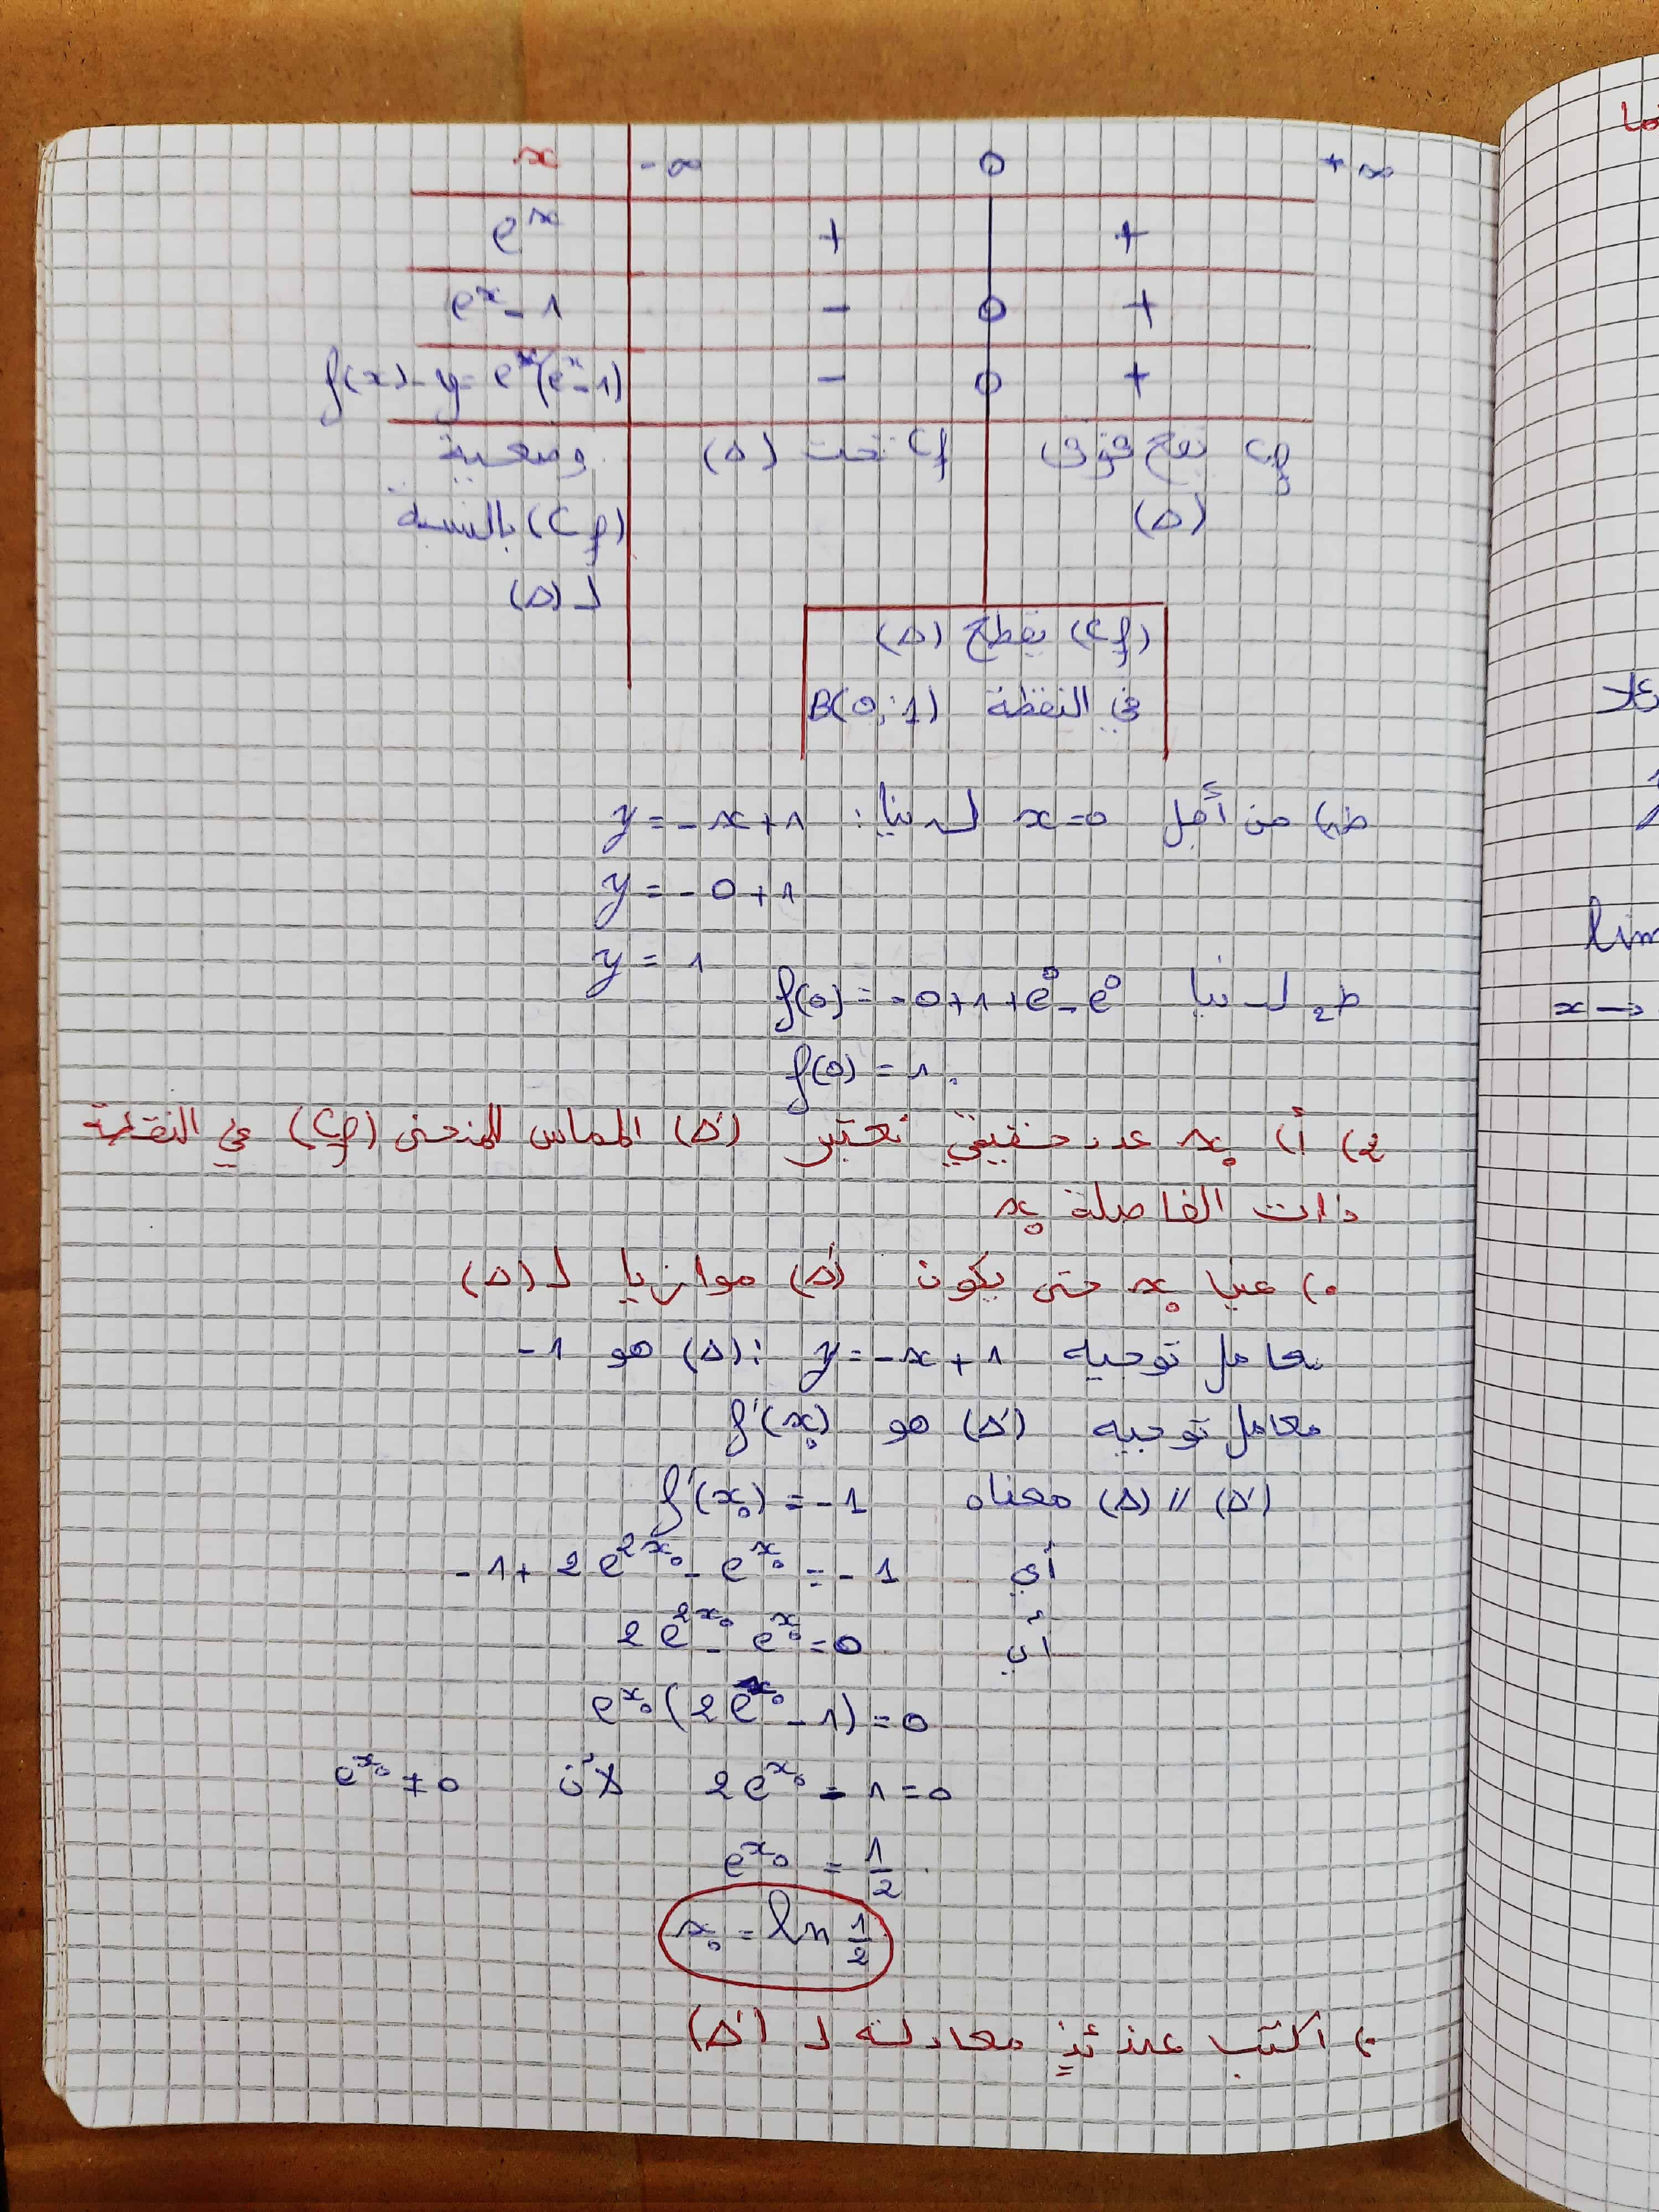 x -∞ 0 +∞
e^x + +
e^x - 1 - 0 +
f(x) - y = e^x(e^x - 1) - 0 +
وضعية (Cf) تحت (Δ) Cf يقع فوق
(Cf) بالنسبة (Δ)
لـ (Δ)
(Cf) يقطع (Δ)
في النقطة B(0;1)
ط1) من أجل x=0 لدينا: y = -x+1
y = -0+1
y = 1
ط2 لدينا f(0) = -0+1+e^0-e^0
f(0) = 1.
2) أ) x₀ عدد حقيقي نعتبر (Δ') المماس للمنحنى (Cf) في النقطة
ذات الفاصلة x₀
•) عين x₀ حتى يكون (Δ') موازيا لـ (Δ)
معامل توجيه y = -x+1 :(Δ) هو -1
معامل توجيه (Δ') هو f'(x₀)
(Δ') // (Δ) معناه f'(x₀) = -1
أي -1+2e^{2x₀} - e^{x₀} = -1
أي 2e^{2x₀} - e^{x₀} = 0
e^{x₀}(2e^{x₀} - 1) = 0
2e^{x₀} - 1 = 0 لأن e^{x₀} ≠ 0
e^{x₀} = 1/2
x₀ = ln 1/2
•) اكتب عندئذ معادلة لـ (Δ')
lim
x →